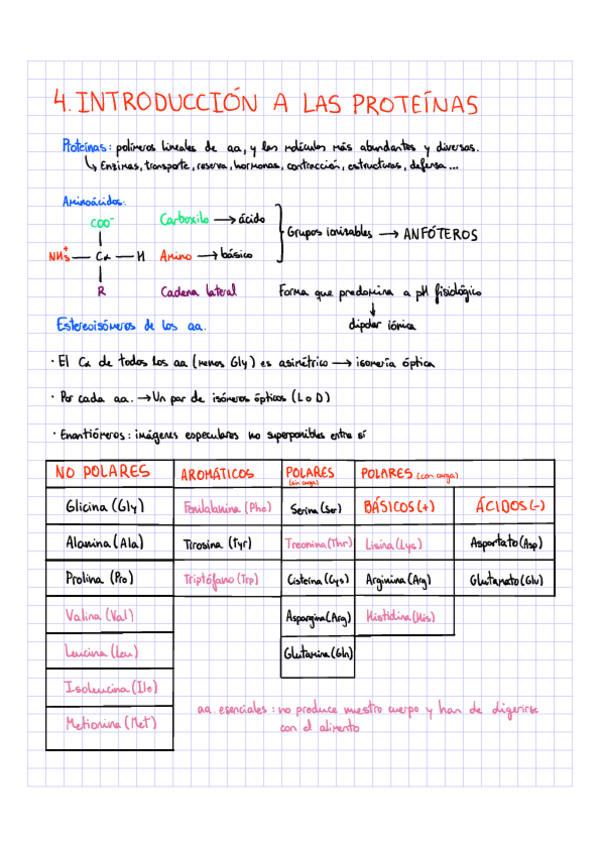 4. INTRODUCCIÓN A LAS PROTEÍNAS
Proteínas: polímeros lineales de aa, y las moléculas más abundantes y diversas.
↳ Enzimas, transporte, reserva, hormonas, contracción, estructuras, defensa...
Aminoácidos:
COO⁻ Carboxilo → ácido
Grupos ionizables → ANFÓTEROS
NH₃⁺ — Cα — H Amino → básico
R Cadena lateral Forma que predomina a pH fisiológico
↓
dipolar iónica
Estereoisómeros de los aa.
· El Cα de todos los aa (menos Gly) es asimétrico → isomería óptica
· Por cada aa. → Un par de isómeros ópticos (L o D)
· Enantiómeros: imágenes especulares no superponibles entre sí
NO POLARES AROMÁTICOS POLARES (sin carga) POLARES (con carga)
Glicina (Gly) Fenilalanina (Phe) Serina (Ser) BÁSICOS (+) ÁCIDOS (-)
Alanina (Ala) Tirosina (Tyr) Treonina (Thr) Lisina (Lys) Aspartato (Asp)
Prolina (Pro) Triptófano (Trp) Cisteína (Cys) Arginina (Arg) Glutamato (Glu)
Valina (Val) Aspargina (Arg) Histidina (His)
Leucina (Leu) Glutamina (Gln)
Isoleucina (Ile)
Metionina (Met)
aa. esenciales: no produce nuestro cuerpo y han de digerirse
con el alimento